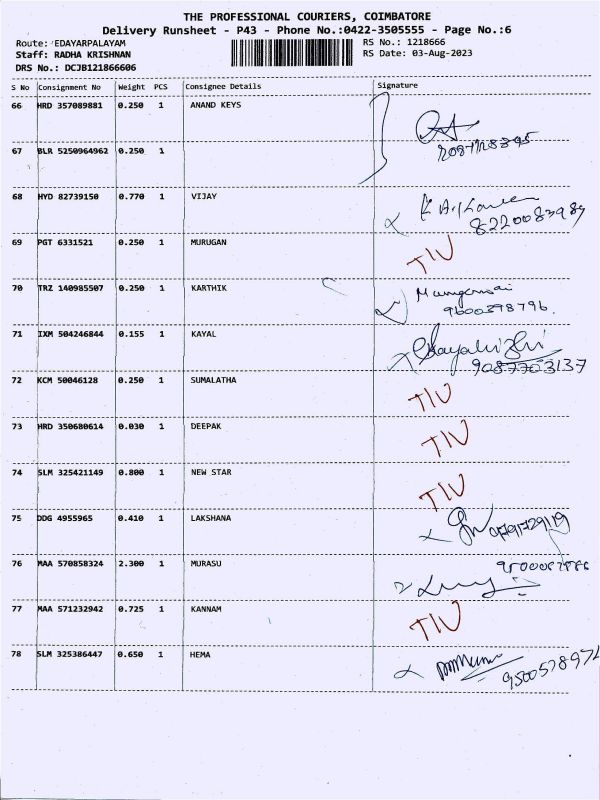 THE PROFESSIONAL COURIERS, COIMBATORE
Delivery Runsheet - P43 - Phone No.:0422-3505555 - Page No.:6
Route: EDAYARPALAYAM RS No.: 1218666
Staff: RADHA KRISHNAN RS Date: 03-Aug-2023
DRS No.: DCJB121866606
S No Consignment No Weight PCS Consignee Details Signature
66 HRD 357089881 0.250 1 ANAND KEYS
67 BLR 5250964962 0.250 1
68 HYD 82739150 0.770 1 VIJAY
8220083989
69 PGT 6331521 0.250 1 MURUGAN TIV
70 TRZ 140985507 0.250 1 KARTHIK
9600398796
71 IXM 504246844 0.155 1 KAYAL
9087703137
72 KCM 50046128 0.250 1 SUMALATHA TIV
73 HRD 350680614 0.030 1 DEEPAK TIV
74 SLM 325421149 0.800 1 NEW STAR TIV
75 DDG 4955965 0.410 1 LAKSHANA
76 MAA 570858324 2.300 1 MURASU
77 MAA 571232942 0.725 1 KANNAM TIV
78 SLM 325386447 0.650 1 HEMA